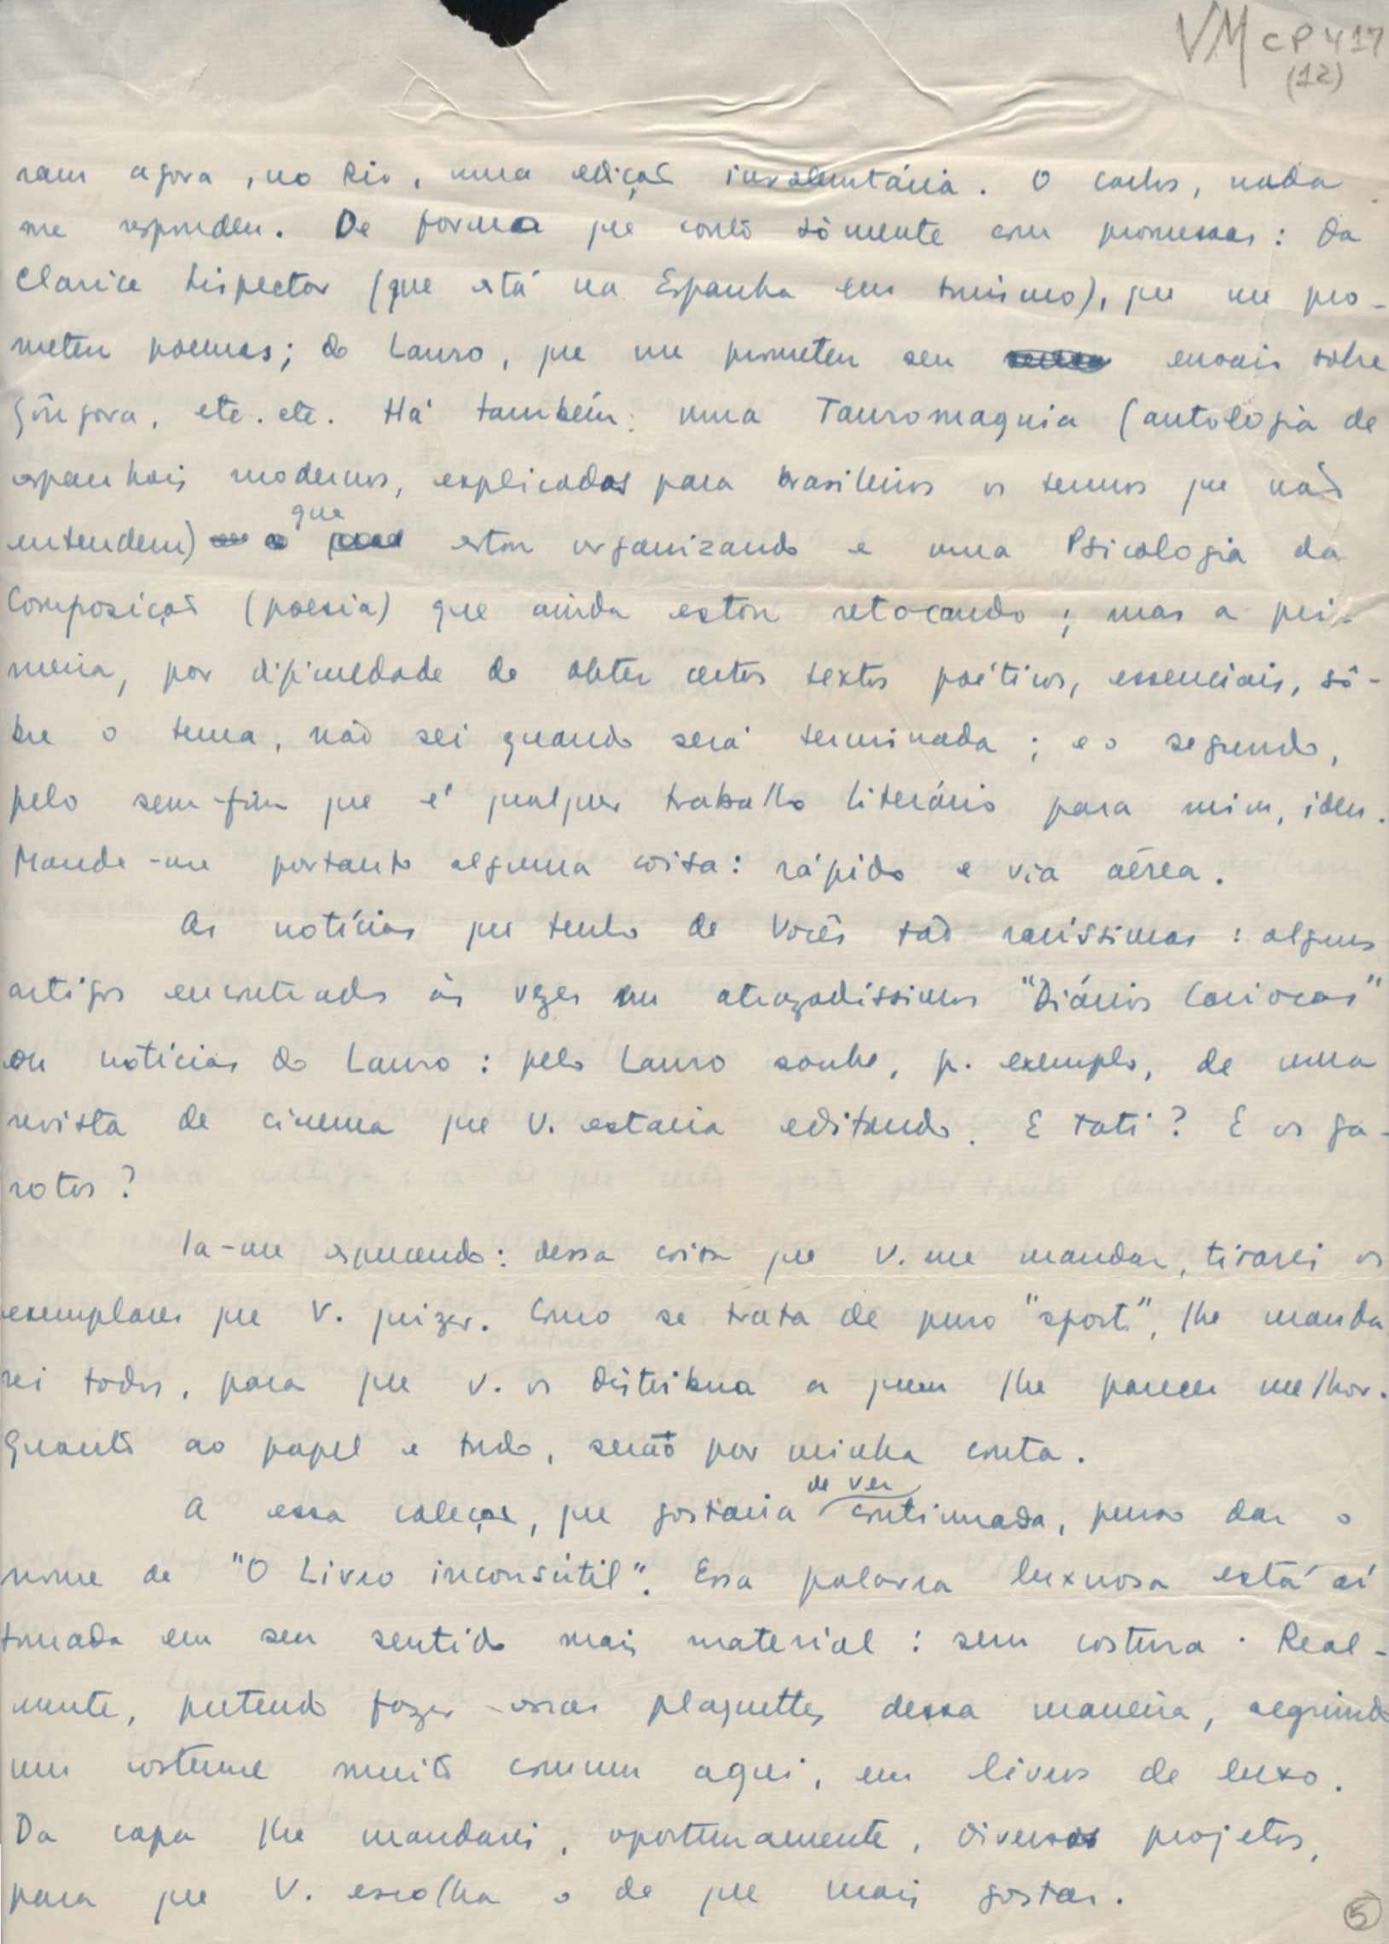 VM CP 417
(12)
ram agora, no Rio, uma edição involuntária. O Carlos, nada
me respondeu. De forma que conto sòmente com promessas: da
Clarice Lispector (que está na Espanha em turismo), que me pro-
meteu poemas; do Lauro, que me prometeu seu ensaio sobre
Gôngora, etc. etc. Há também: uma Tauromaquia (antologia de
espanhois modernos, explicados para brasileiros os termos que não
entendem) que estou organizando e uma Psicologia da
Composição (poesia) que ainda estou retocando; mas a pri-
meira, por dificuldade de obter certos textos poéticos, essenciais, sô-
bre o tema, não sei quando será terminada; e o segundo,
pelo sem-fim que é qualquer trabalho literário para mim, idem.
Mande-me portanto alguma coisa: rápido e via aérea.
As notícias que tenho de Vocês são raríssimas: alguns
artigos encontrados às vezes em atrazadíssimos "Diários Cariocas"
ou notícias do Lauro: pelo Lauro soube, p. exemplo, de uma
revista de cinema que V. estaria editando. E Tati? E os ga-
rotos?
Ia-me esquecendo: dessa coisa que V. me mandar, tirarei os
exemplares que V. quizer. Como se trata de puro "sport", lhe manda
rei todos, para que V. os distribua a quem lhe parecer melhor.
Quanto ao papel e tudo, serão por minha conta.
A essa coleção, que gostaria de ver continuada, penso dar o
nome de "O Livro inconsútil". Essa palavra luxuosa está aí
tomada em seu sentido mais material: sem costura. Real-
mente, pretendo fazer essas plaquettes dessa maneira, seguindo
um costume muito comum aqui, em livros de luxo.
Da capa lhe mandarei, oportunamente, diversos projetos,
para que V. escolha o de que mais gostar.
5